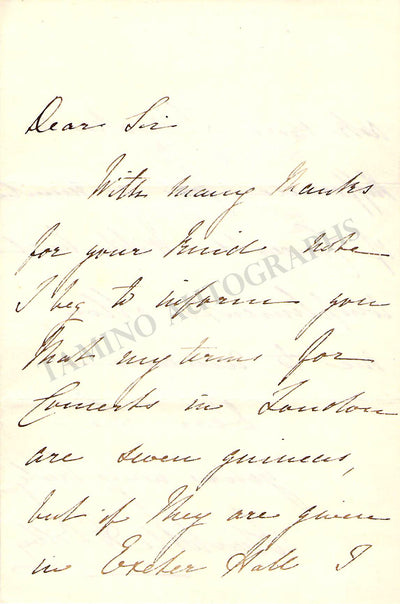 Dear Sir
With many thanks
for your kind note
I beg to inform you
that my terms for
Concerts in London
are seven guineas,
but if they are given
in Exeter Hall I
TAMINO AUTOGRAPHS